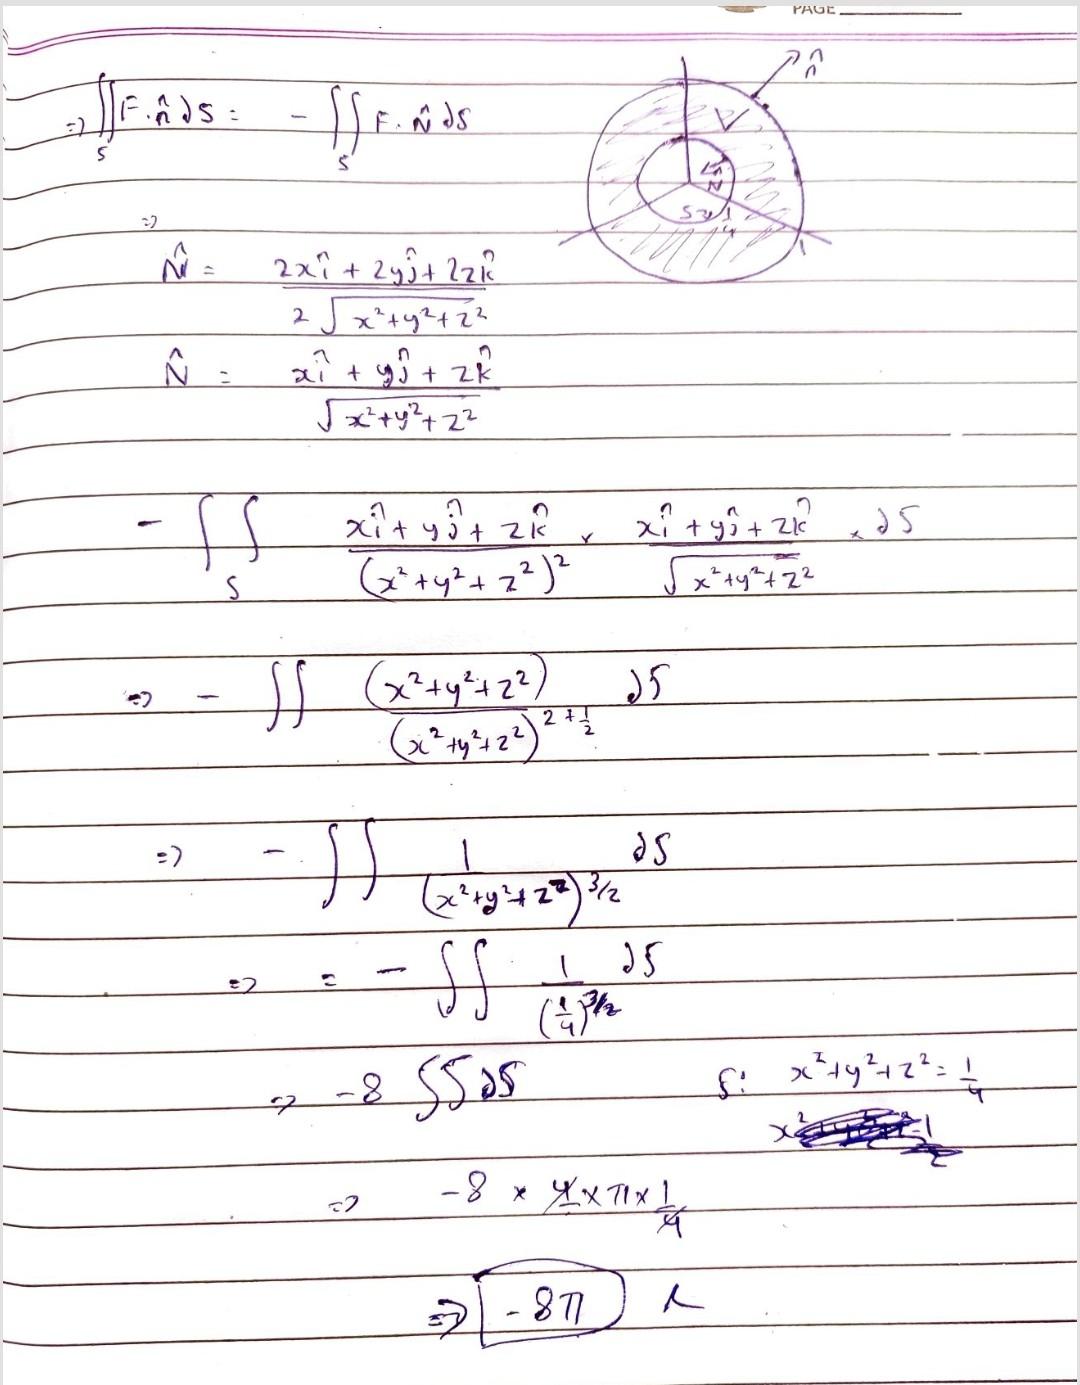 PAGE
n̂
⇒ ∬_S F.n̂ dS = - ∬_S F.N̂ dS
V
N̂
S → 1/4
1
⇒
N̂ = (2xî + 2yĵ + 2zk̂) / (2√(x²+y²+z²))
N̂ = (xî + yĵ + zk̂) / √(x²+y²+z²)
- ∬_S (xî + yĵ + zk̂) / (x²+y²+z²)² × (xî + yĵ + zk̂) / √(x²+y²+z²) × dS
⇒ - ∬ (x²+y²+z²) / (x²+y²+z²)^(2+1/2) dS
⇒ - ∬ 1 / (x²+y²+z²)^(3/2) dS
⇒ = - ∬ 1 / (1/4)^(3/2) dS
⇒ -8 ∬ dS S: x²+y²+z² = 1/4
⇒ -8 × 4 × π × 1/4
⇒ -8π